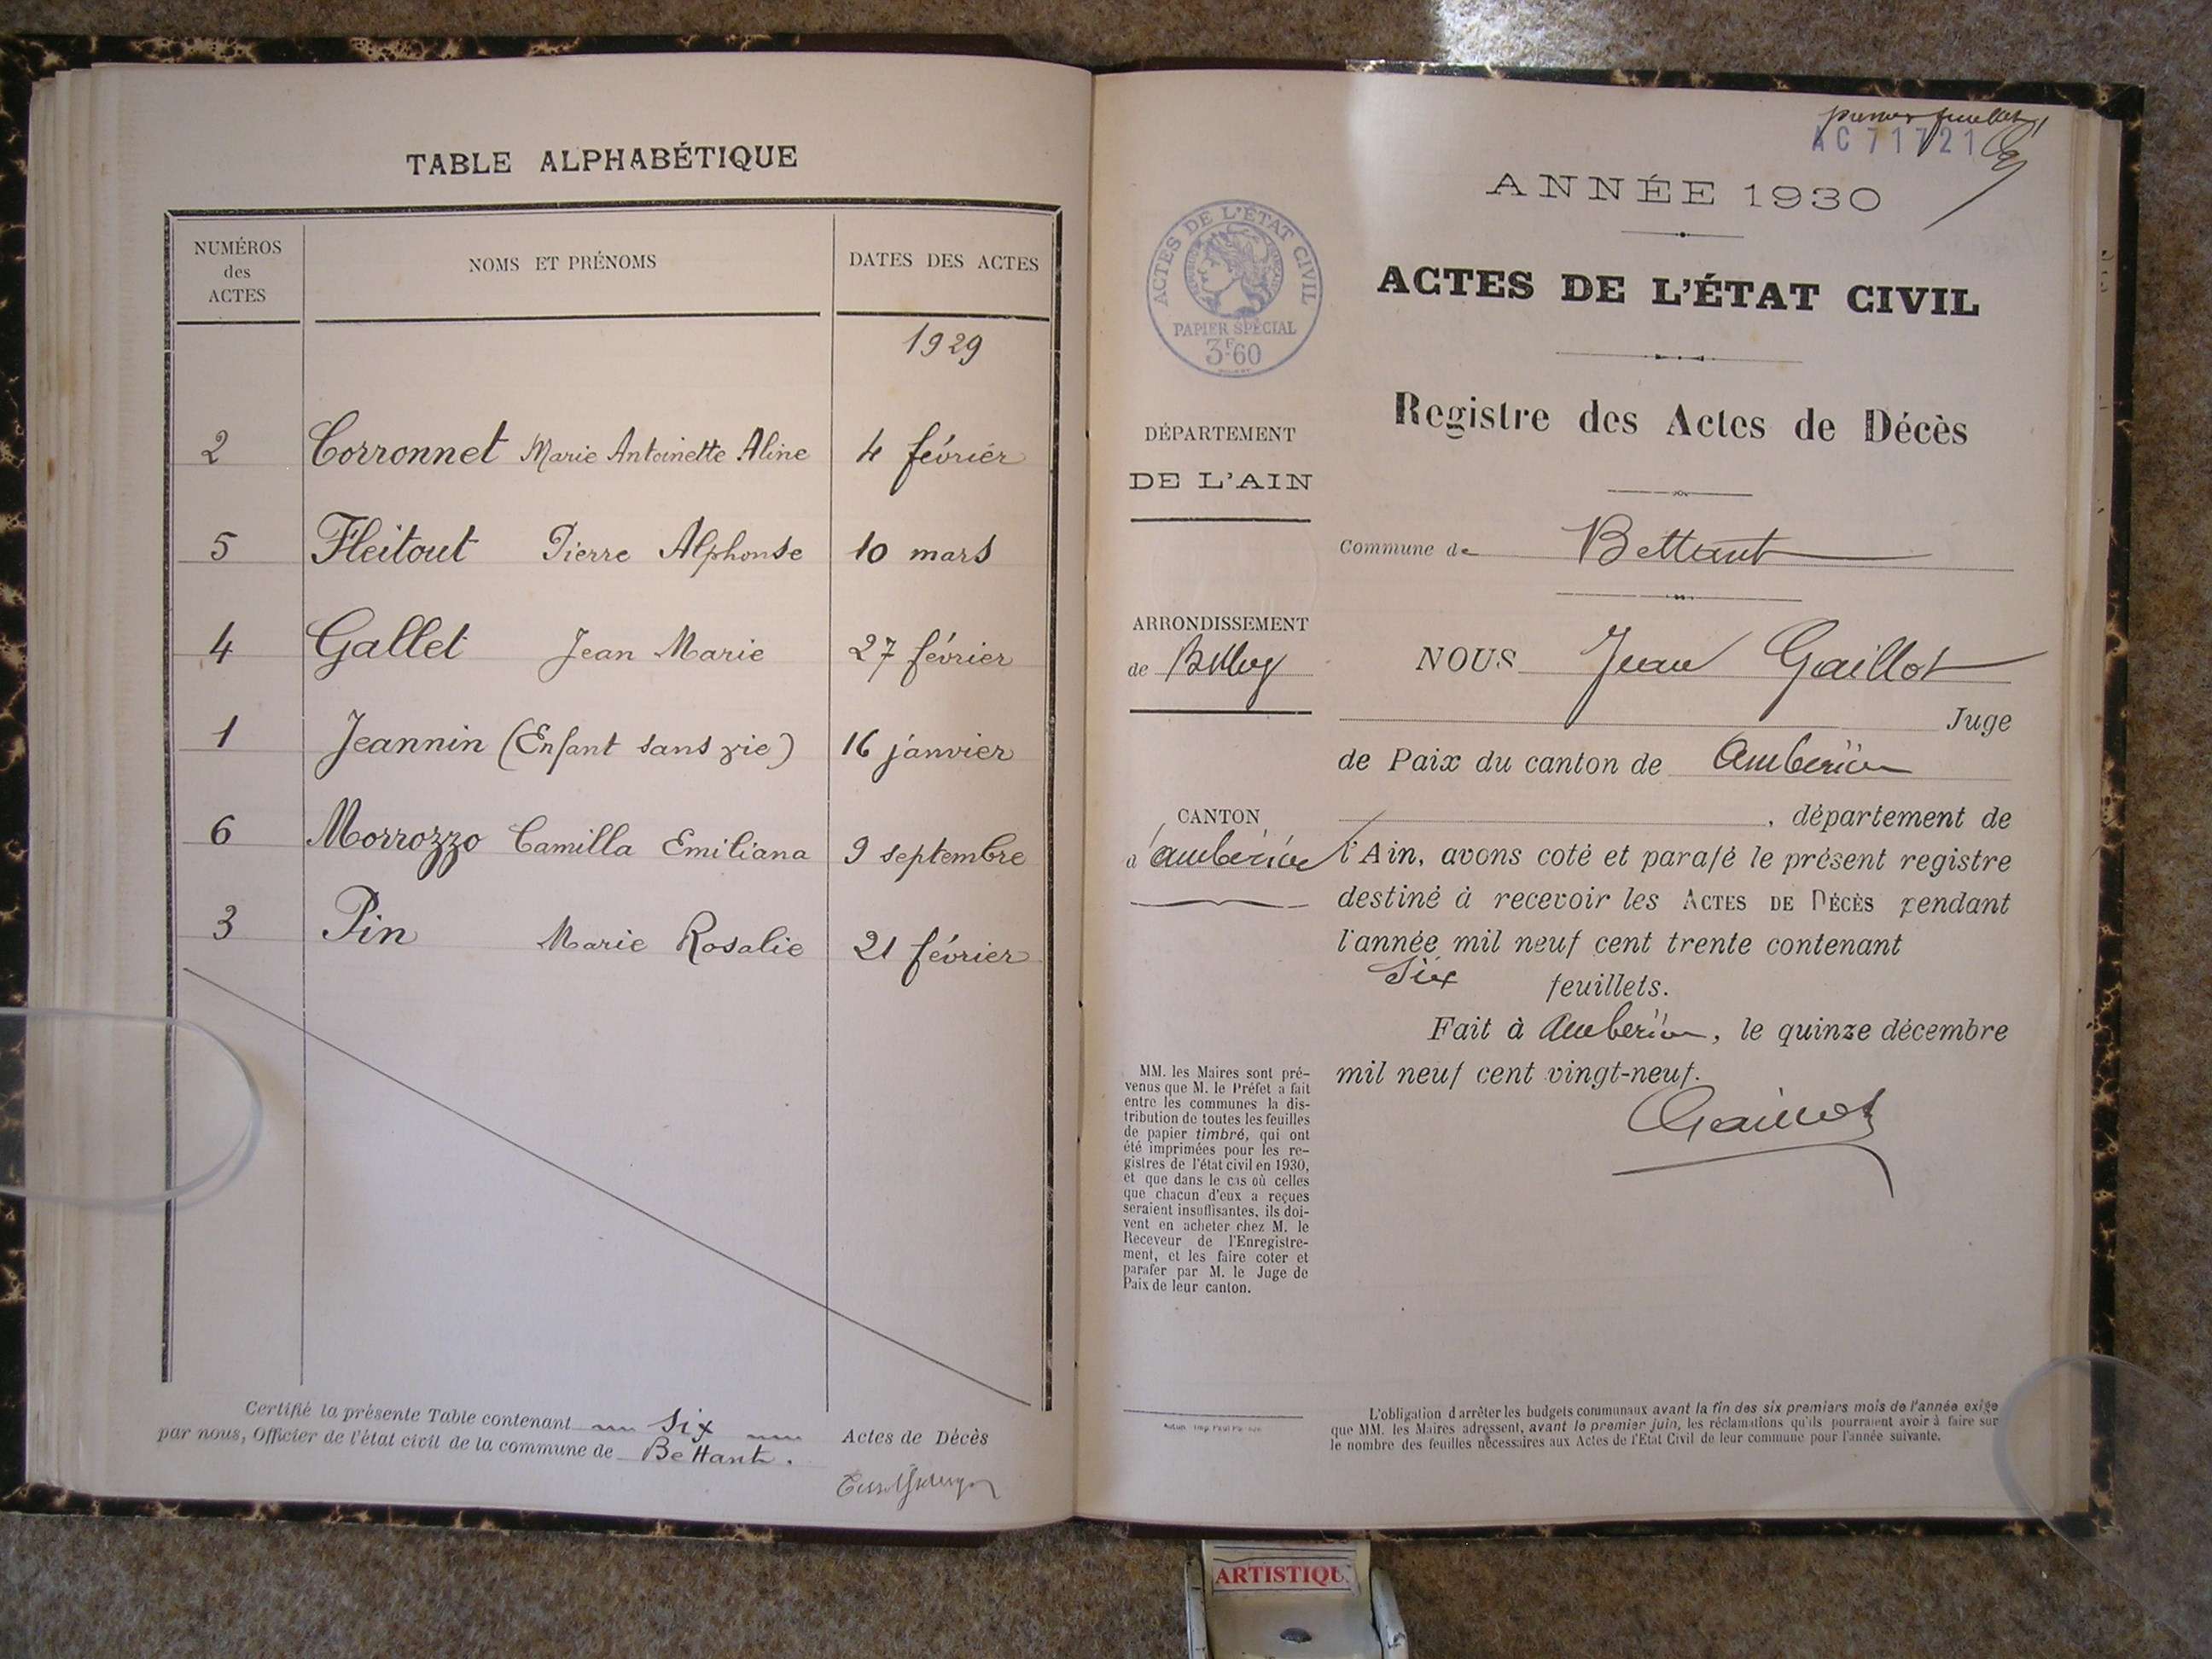 TABLE ALPHABÉTIQUE
NUMÉROS des ACTES
NOMS ET PRÉNOMS
DATES DES ACTES
1929
2 Corronnet Marie Antoinette Aline 4 février
5 Fleitout Pierre Alphonse 10 mars
4 Gallet Jean Marie 27 février
1 Jeannin (Enfant sans vie) 16 janvier
6 Morrozzo Camilla Emiliana 9 septembre
3 Pin Marie Rosalie 21 février
Certifié la présente Table contenant six Actes de Décès
par nous, Officier de l'état civil de la commune de Bettant.
premier feuillet
AC 71721
ANNÉE 1930
ACTES DE L'ÉTAT CIVIL
PAPIER SPÉCIAL
3F60
ACTES DE L'ÉTAT CIVIL
Registre des Actes de Décès
DÉPARTEMENT
DE L'AIN
Commune de Bettant
ARRONDISSEMENT
de Belley
NOUS Jean Gaillot
Juge
de Paix du canton de Ambérieu
CANTON
d'Ambérieu
, département de
l'Ain, avons coté et parafé le présent registre
destiné à recevoir les ACTES DE DÉCÈS pendant
l'année mil neuf cent trente contenant
six feuillets.
Fait à Ambérieu, le quinze décembre
mil neuf cent vingt-neuf.
Gaillot
MM. les Maires sont pré-
venus que M. le Préfet a fait
entre les communes la dis-
tribution de toutes les feuilles
de papier timbré, qui ont
été imprimées pour les re-
gistres de l'état civil en 1930,
et que dans le cas où celles
que chacun d'eux a reçues
seraient insuffisantes, ils doi-
vent en acheter chez M. le
Receveur de l'Enregistre-
ment, et les faire coter et
parafer par M. le Juge de
Paix de leur canton.
L'obligation d'arrêter les budgets communaux avant la fin des six premiers mois de l'année exige
que MM. les Maires adressent, avant le premier juin, les réclamations qu'ils pourraient avoir à faire sur
le nombre des feuilles nécessaires aux Actes de l'État Civil de leur commune pour l'année suivante.
ARTISTIQU